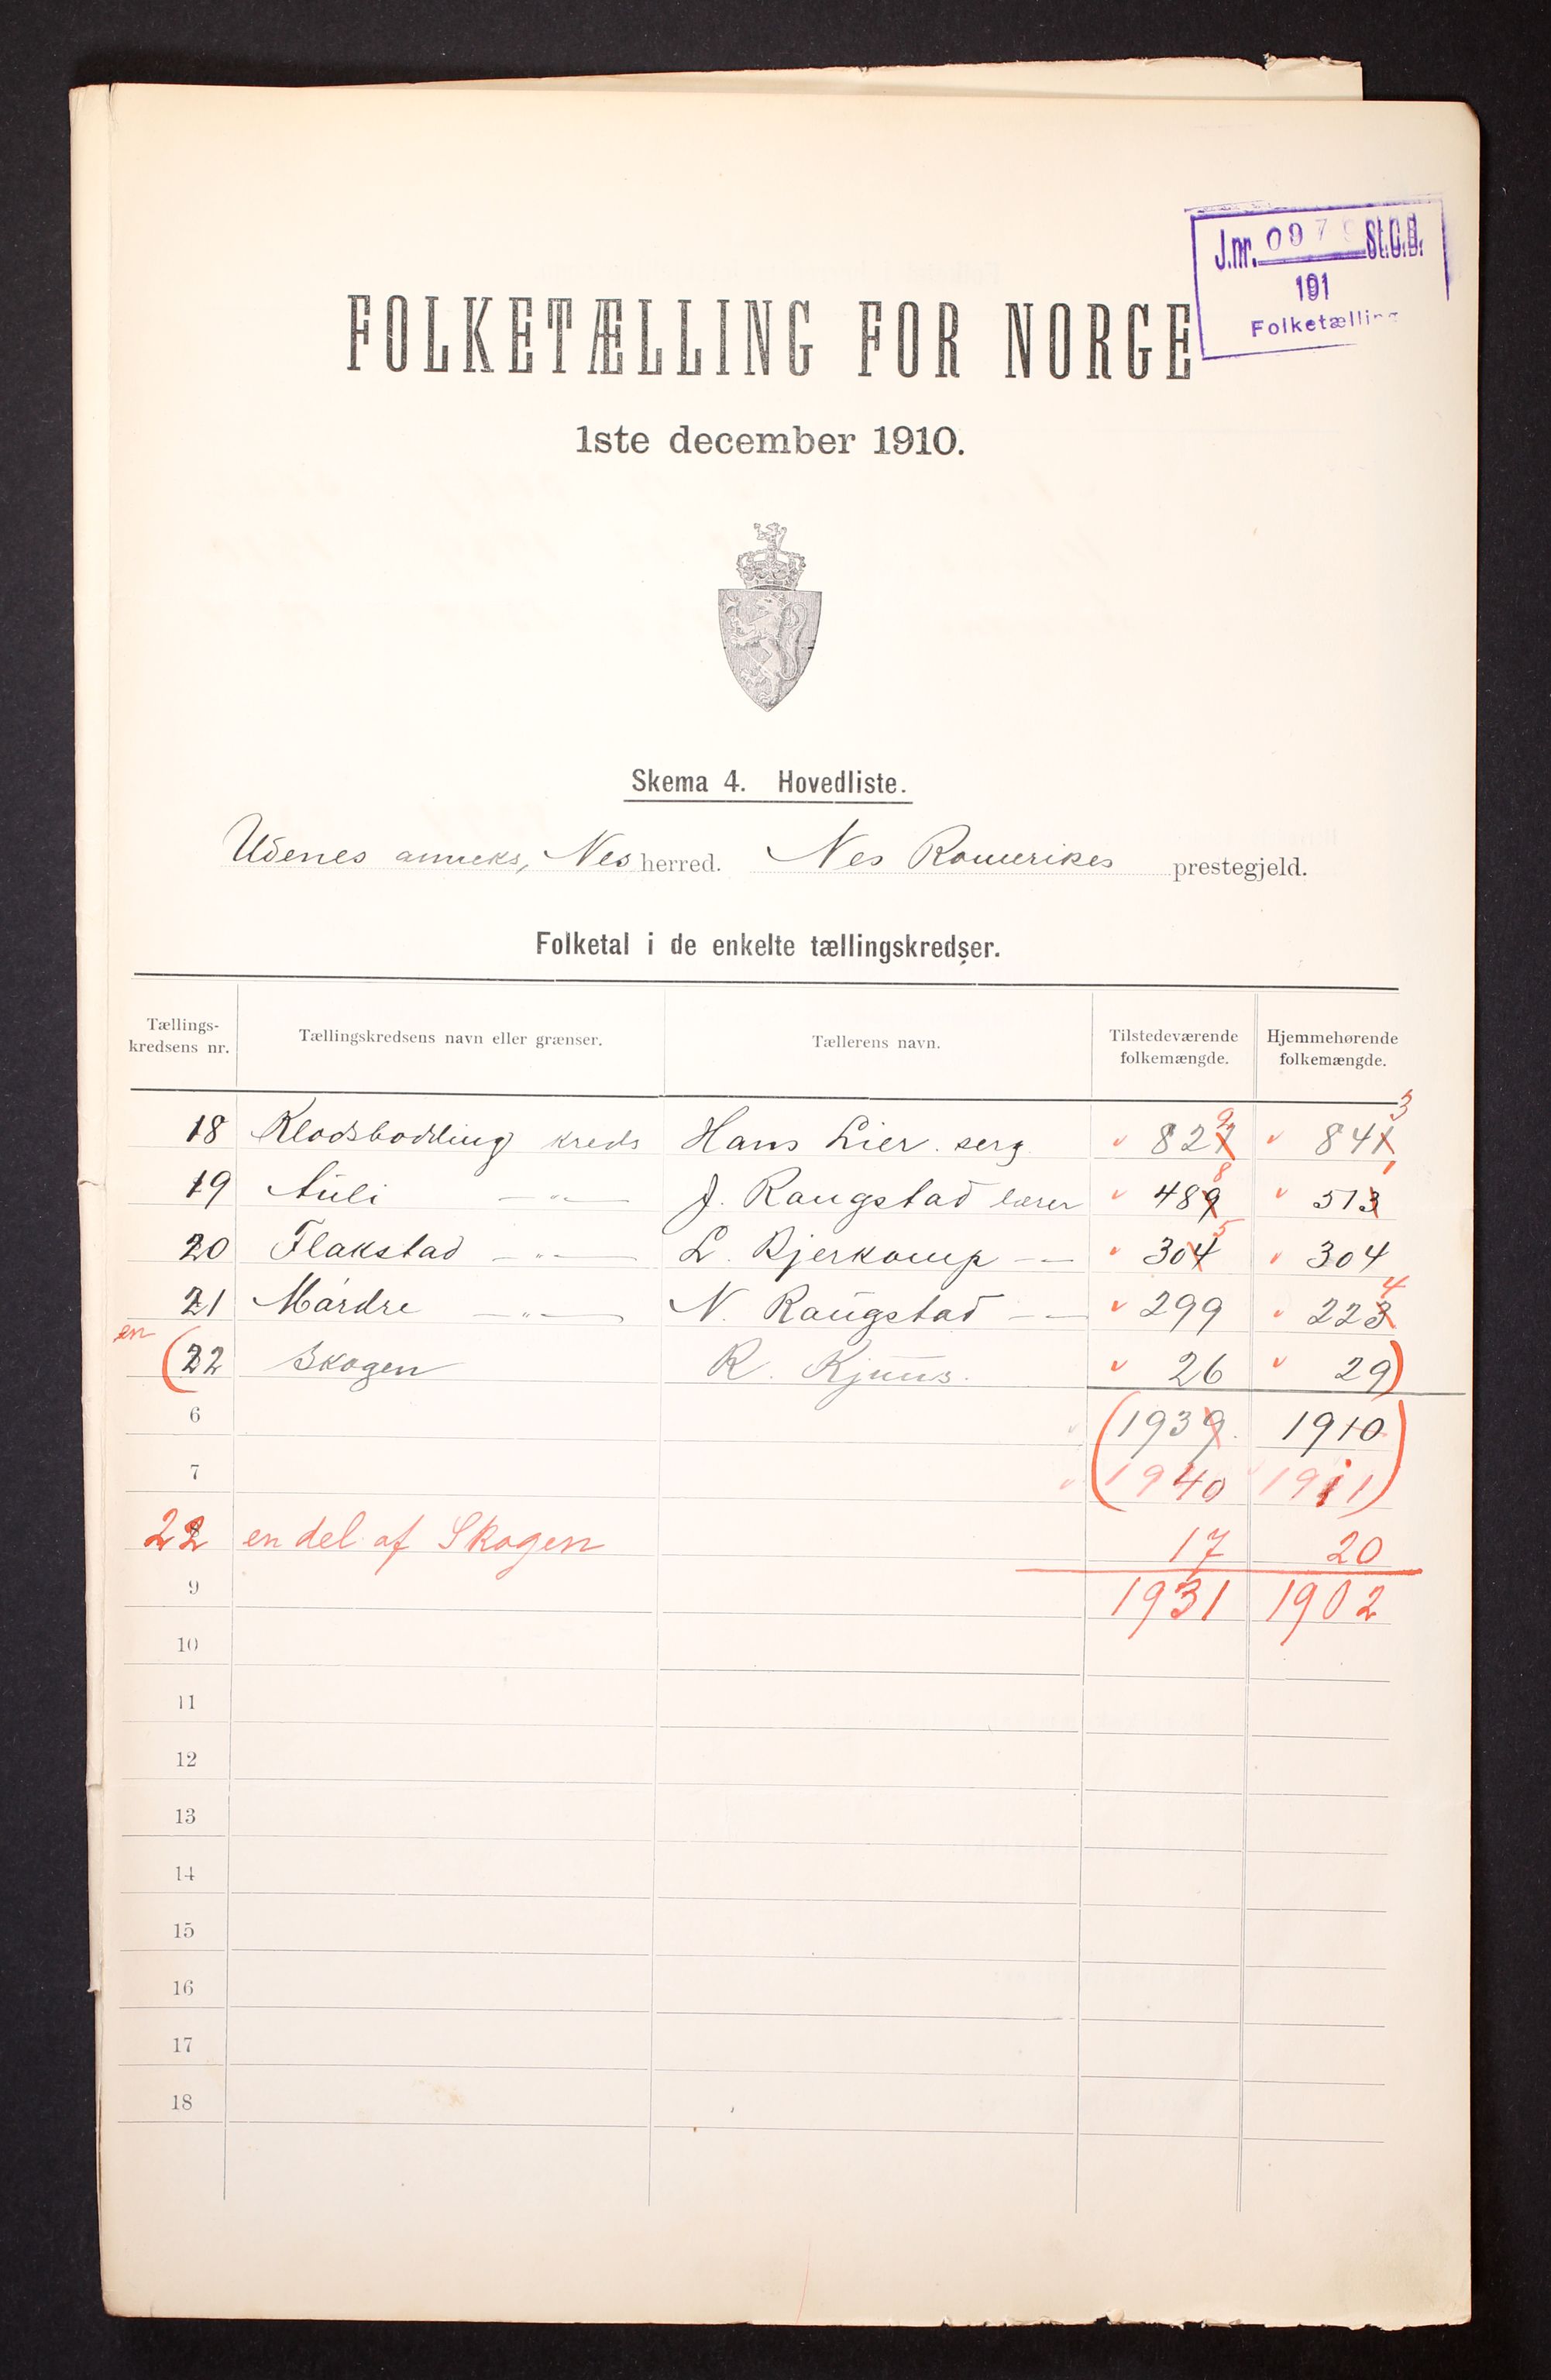 J.nr. 097 St.C.B.
191
Folketælling
FOLKETÆLLING FOR NORGE
1ste december 1910.
Skema 4. Hovedliste.
Udenes anneks, Nes herred. Nes Romerikes prestegjeld.
Folketal i de enkelte tællingskredser.
Tællings-kredsens nr. Tællingskredsens navn eller grænser. Tællerens navn. Tilstedeværende folkemængde. Hjemmehørende folkemængde.
18 Klodsbodding kreds Hans Lier. serg 827 9 841 3
19 Auli —"— J. Raugstad lærer 489 8 513 1
20 Flakstad —"— L. Bjerkomp —— 304 5 304
21 Mårdre —"— N. Raugstad —— 299 223 4
en (22 Skogen R. Kjuus. 26 29)
6 (1939. 1910)
7 (1940 1911)
22 en del af Skogen 17 20
9 1931 1902
10
11
12
13
14
15
16
17
18